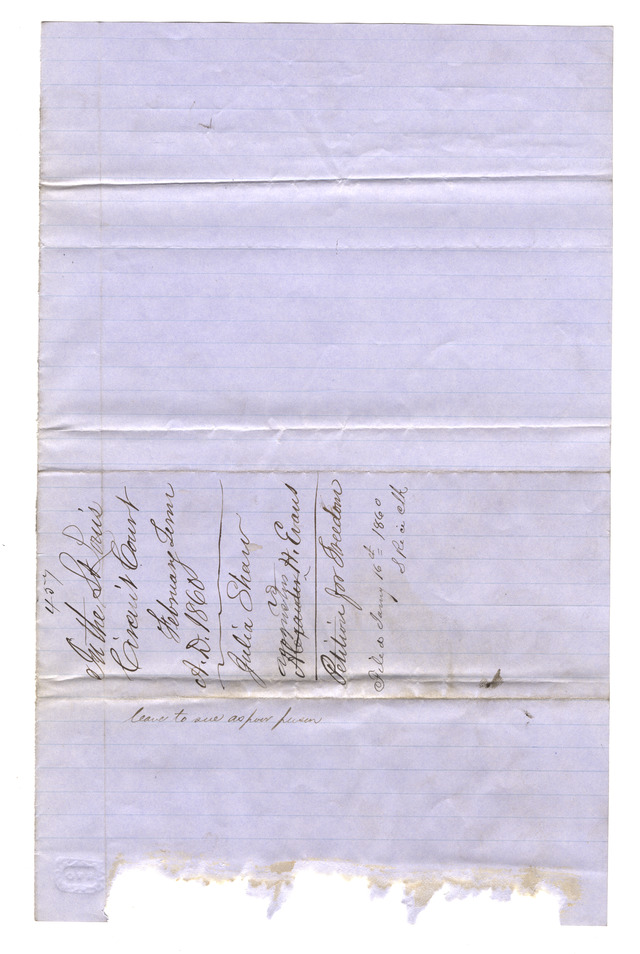 457
In the St Louis
Circuit Court
February Term
A.D. 1860
Julia Shaw
vs
H. Evans
Petition for Freedom
Filed Jany 16th 1860
S Rice Clk
leave to sue as poor person